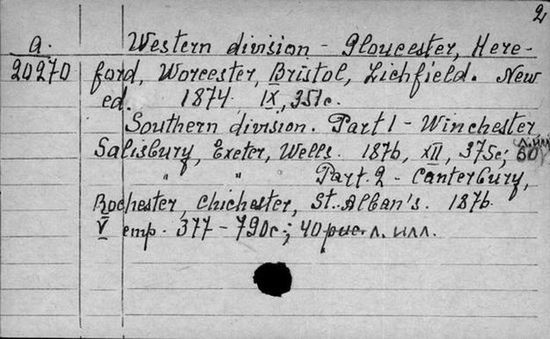 2
a. Western division - Gloucester, Here-
20270 ford, Worcester, Bristol, Lichfield. New
ed. 1874 IX, 351c.
Southern division. Part 1 - Winchester,
Salisbury, Exeter, Wells. 1876, XII, 375c; 50
" " Part. 2 - Canterbury,
Rochester, Chichester, St. Alban's. 1876.
V стр. 377 - 790c.; 40 рис. л. илл.